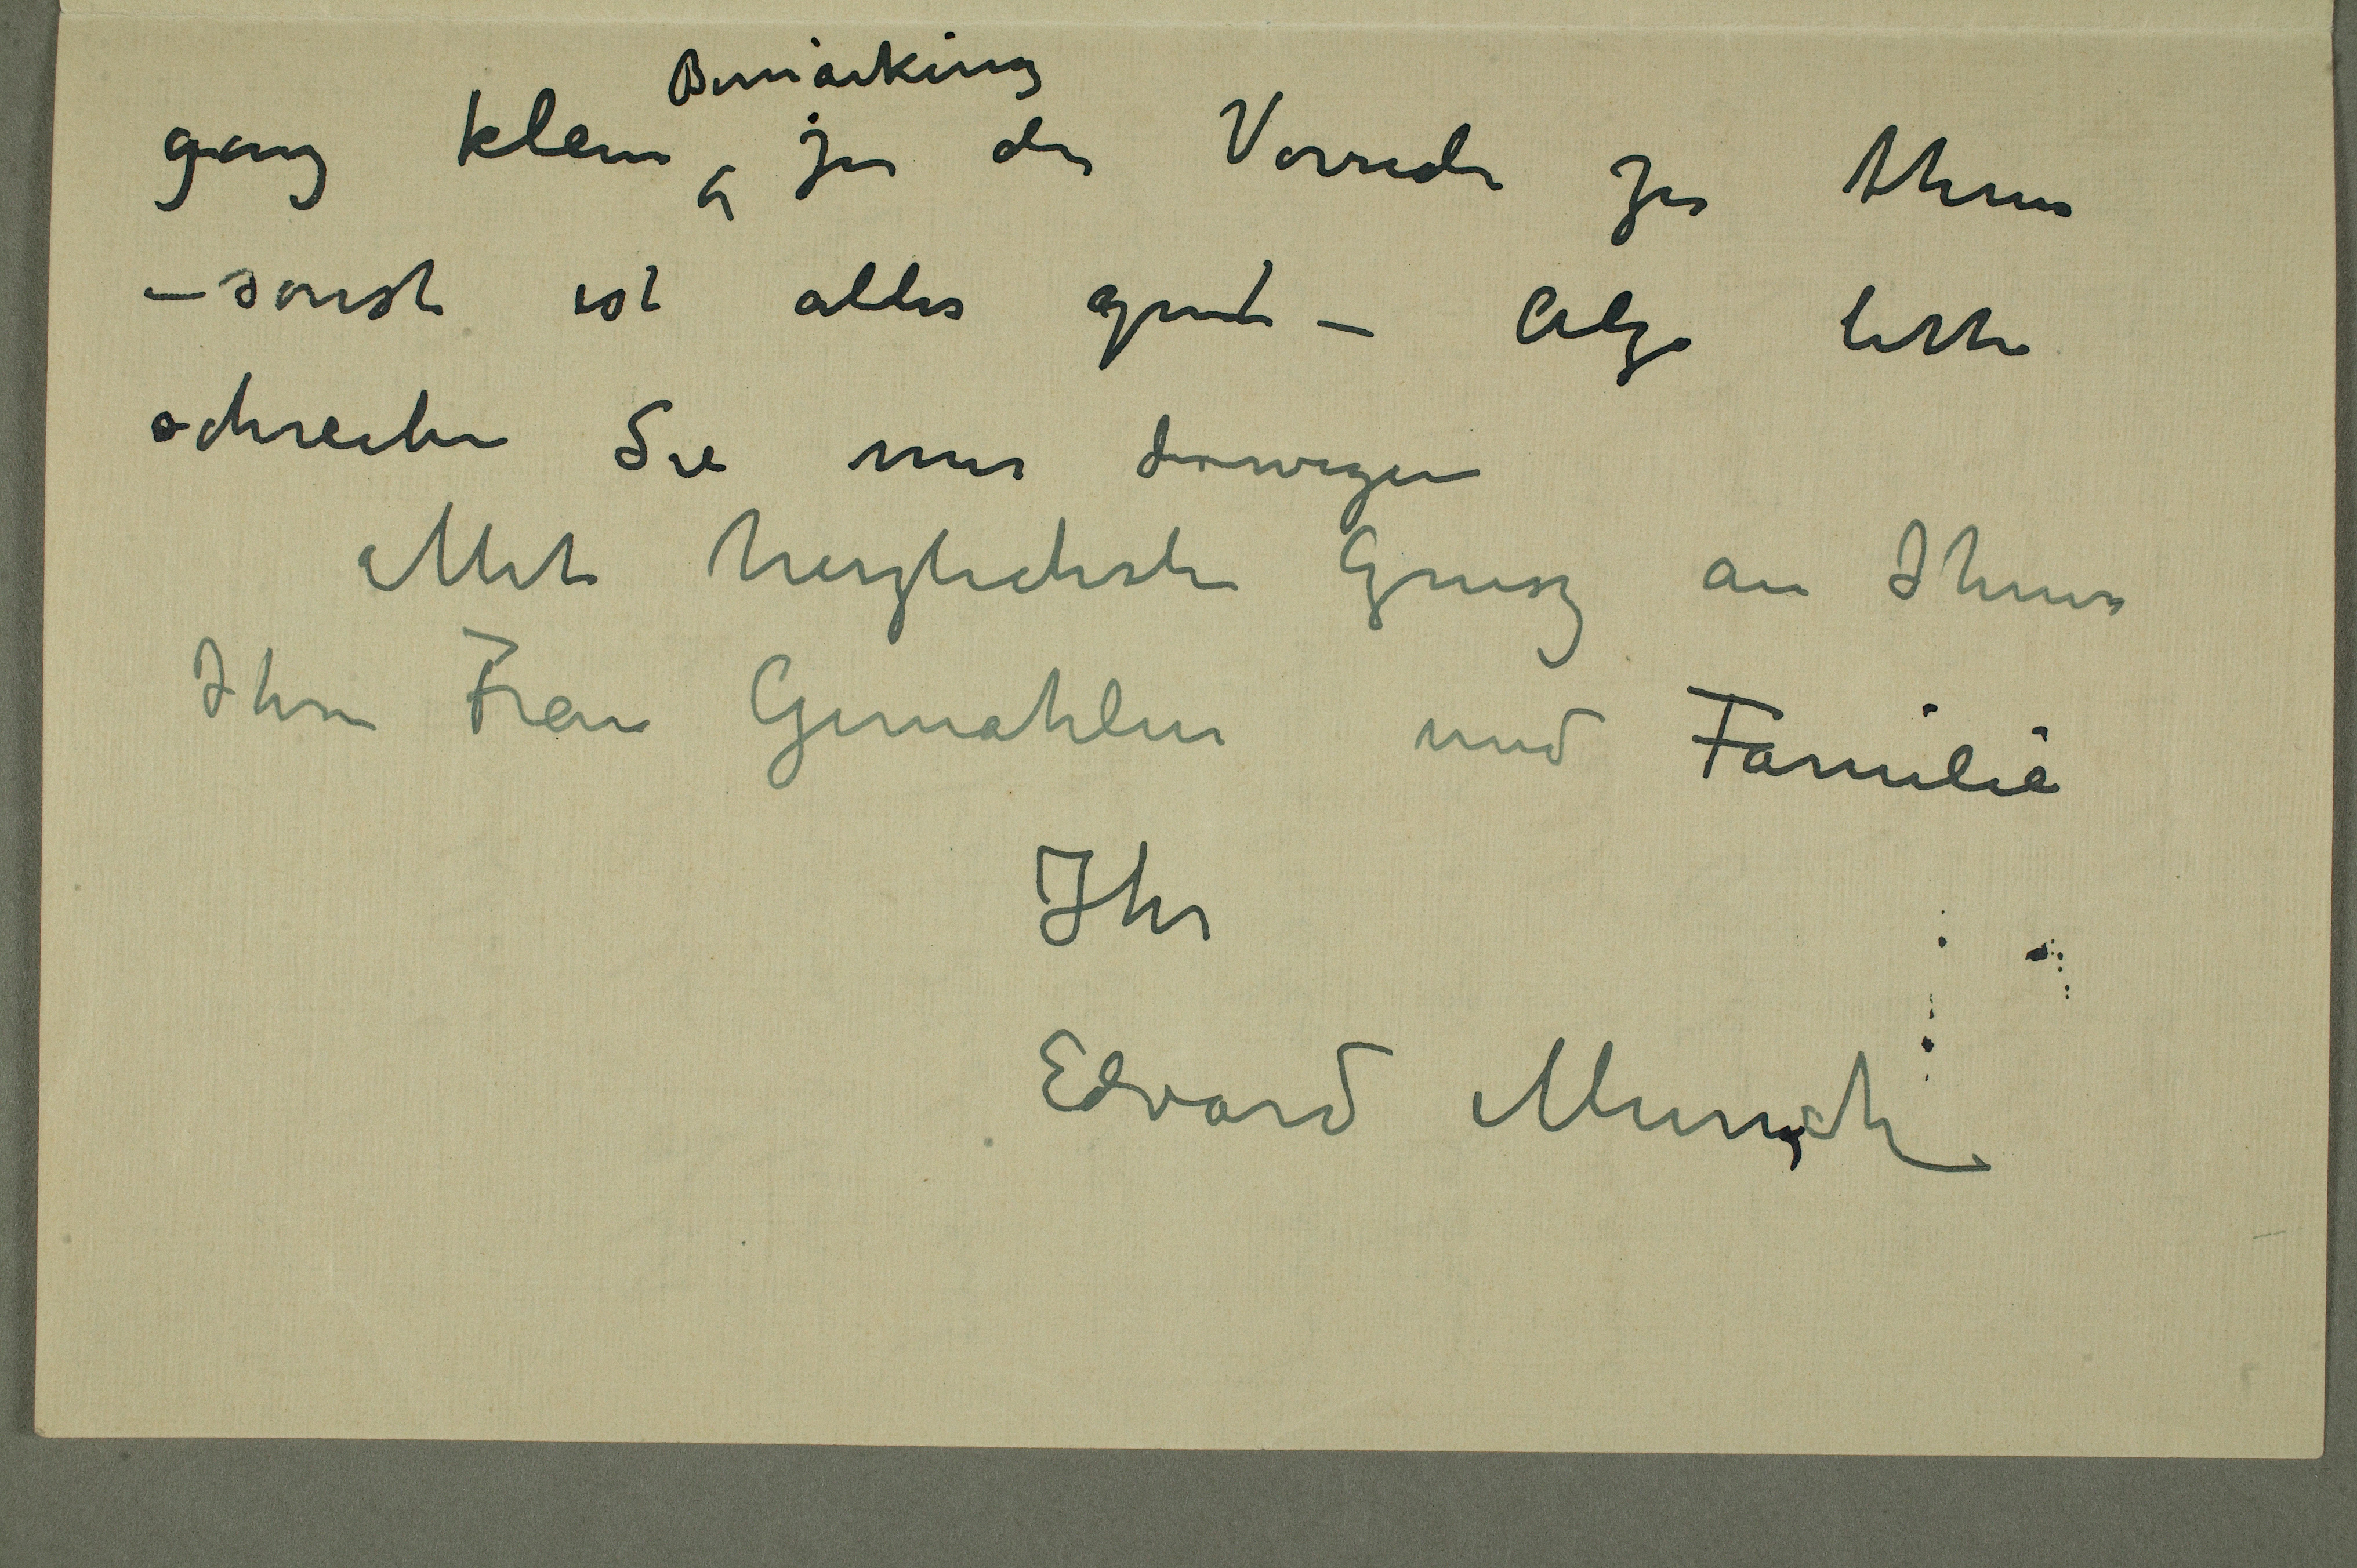 Bemärking
ganz klein zu der Vorrede zu Ihnen
– sonst ist alles gut – Alzo bitte
schreiben Sie mir deswegen
Mit herzlichsten Grusz an Ihnen
Ihre Frau Gemahlin und Familie
Ihr
Edvard Munch